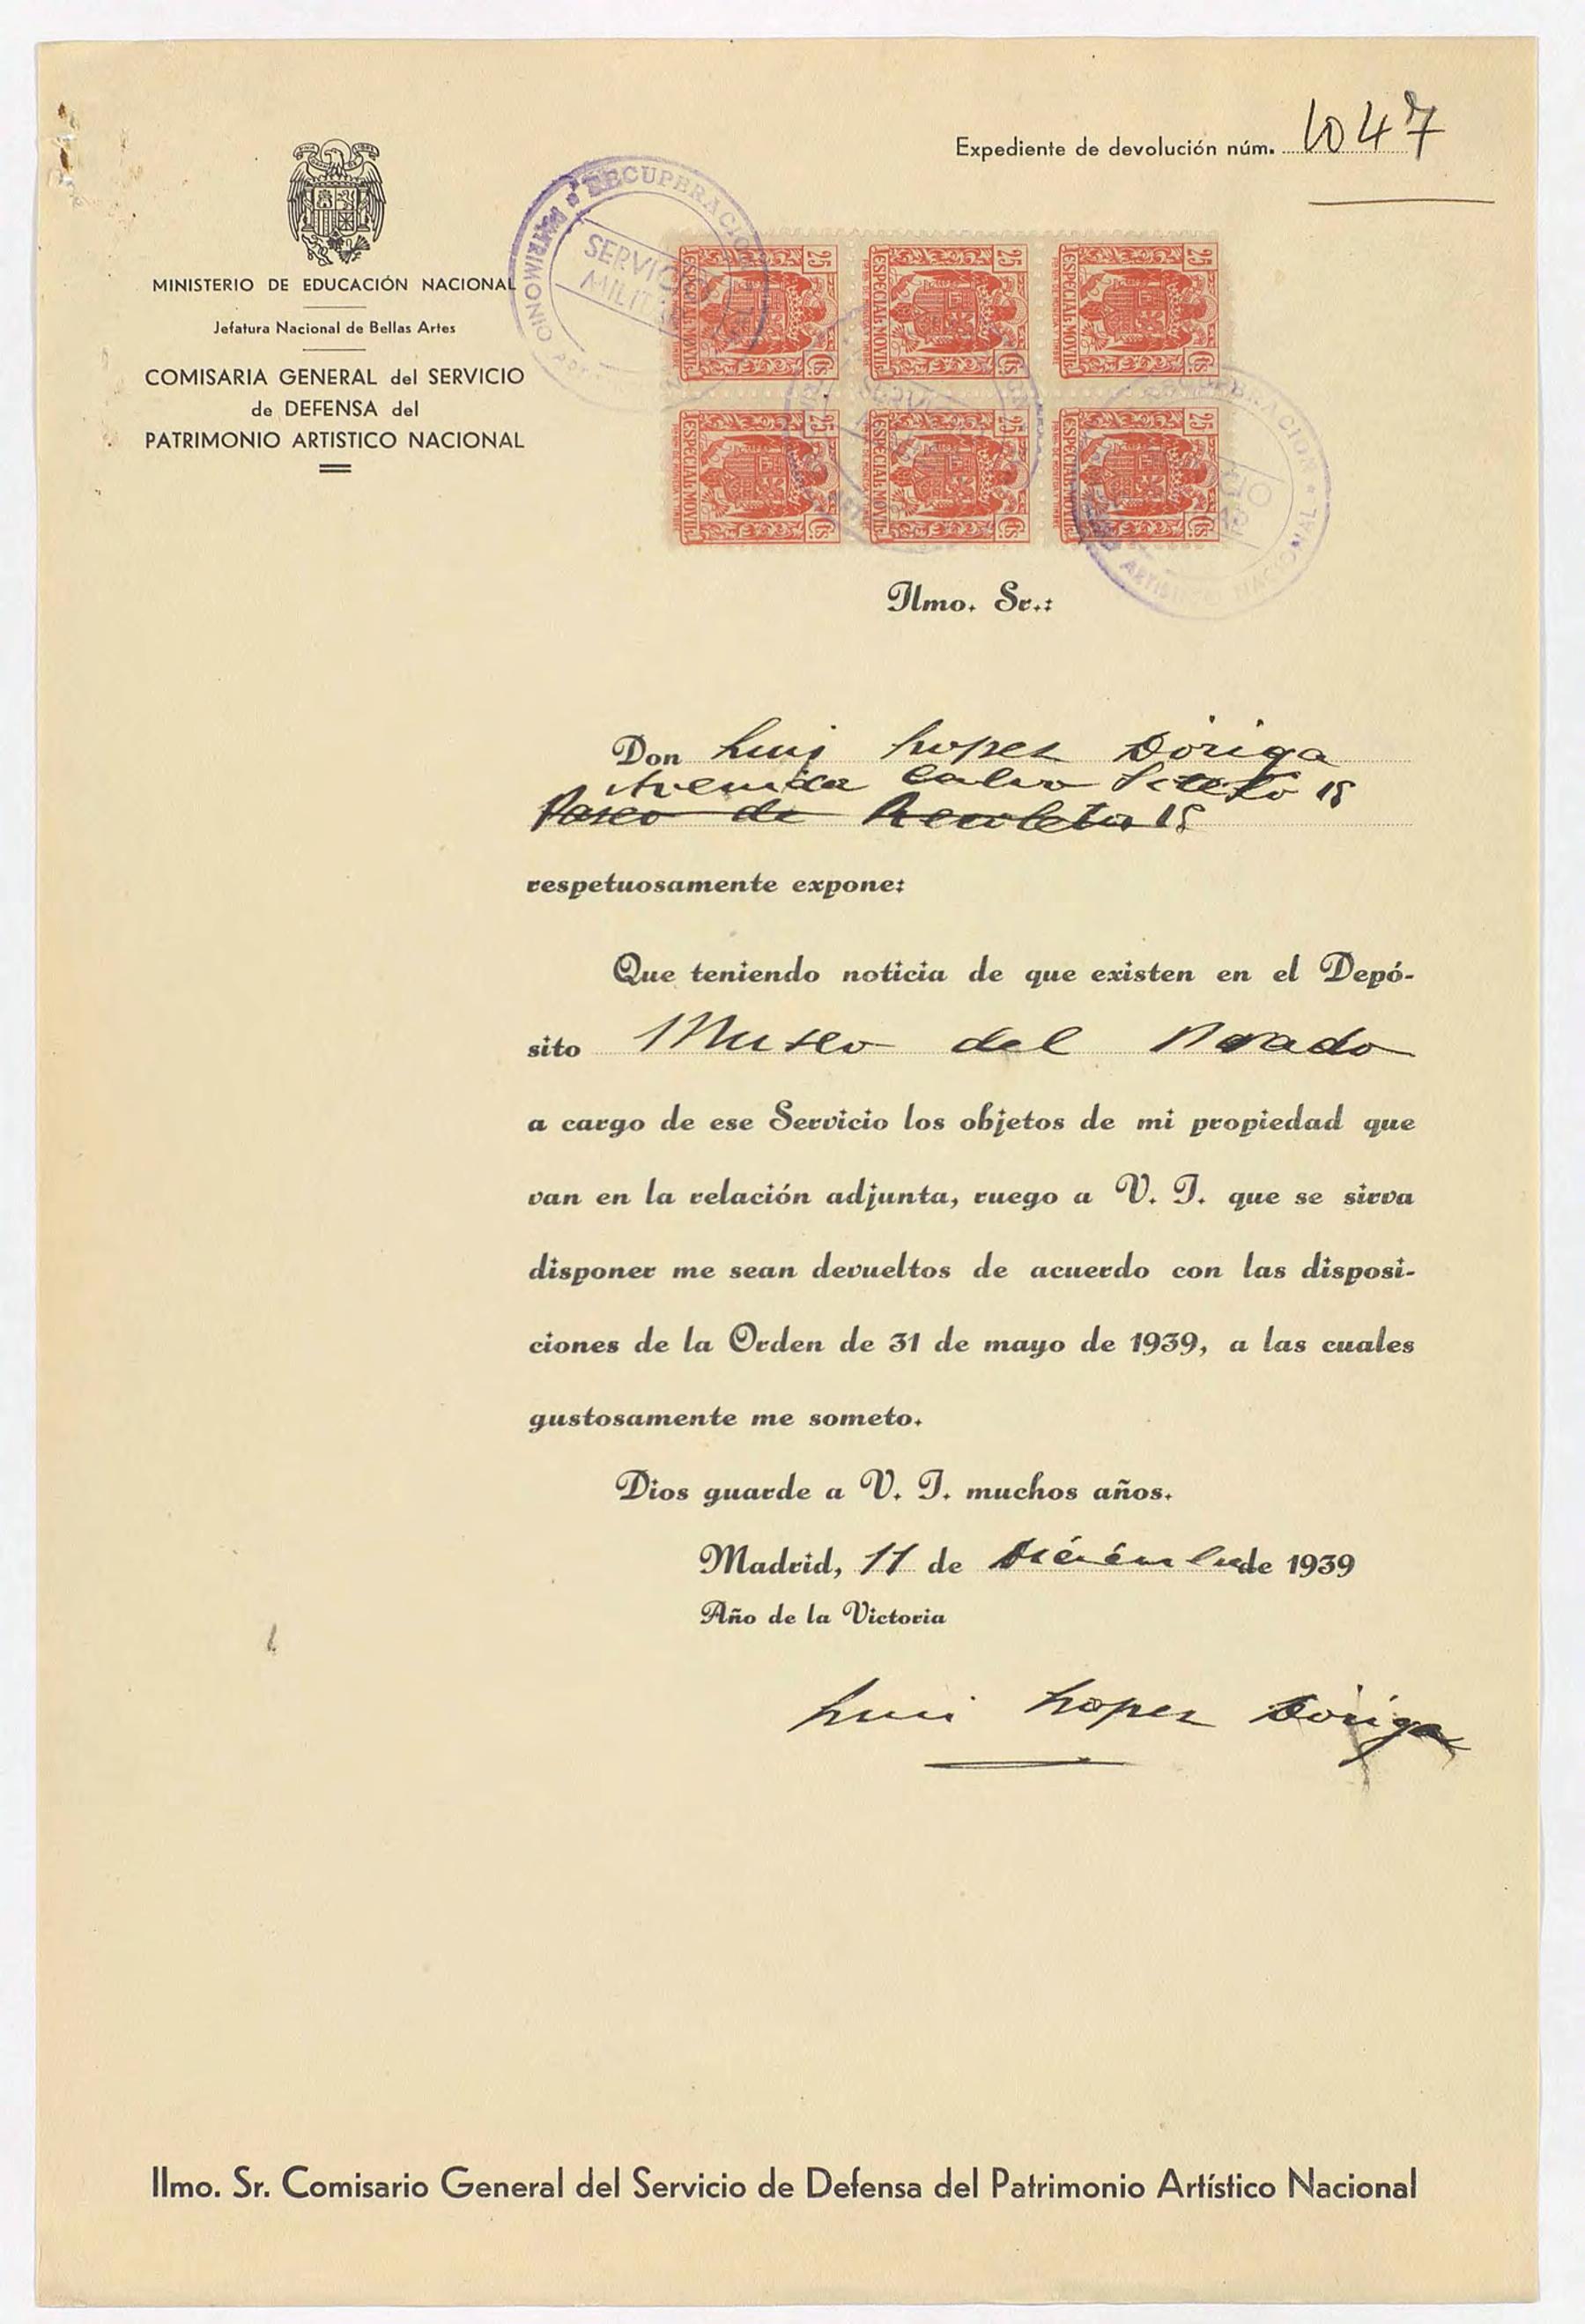 Expediente de devolución núm. 1047
MINISTERIO DE EDUCACIÓN NACIONAL
Jefatura Nacional de Bellas Artes
COMISARIA GENERAL del SERVICIO
de DEFENSA del
PATRIMONIO ARTISTICO NACIONAL
RECUPERACION
PATRIMONIO
SERVICIO
MILITAR
25 ESPECIAL MOVIL Cts
25 ESPECIAL MOVIL Cts
25 ESPECIAL MOVIL Cts
25 ESPECIAL MOVIL Cts
25 ESPECIAL MOVIL Cts
25 ESPECIAL MOVIL Cts
RECUPERACION
ARTISTICO NACIONAL
Ilmo. Sr.:
Don Luis Lopez Dóriga
Avenida Calvo Sotelo 18
Paseo de Recoletos 18
respetuosamente expone:
Que teniendo noticia de que existen en el Depó-
sito Museo del Prado
a cargo de ese Servicio los objetos de mi propiedad que
van en la relación adjunta, ruego a V. I. que se sirva
disponer me sean devueltos de acuerdo con las disposi-
ciones de la Orden de 31 de mayo de 1939, a las cuales
gustosamente me someto.
Dios guarde a V. I. muchos años.
Madrid, 11 de Diciembre de 1939
Año de la Victoria
Luis Lopez Dóriga
Ilmo. Sr. Comisario General del Servicio de Defensa del Patrimonio Artístico Nacional